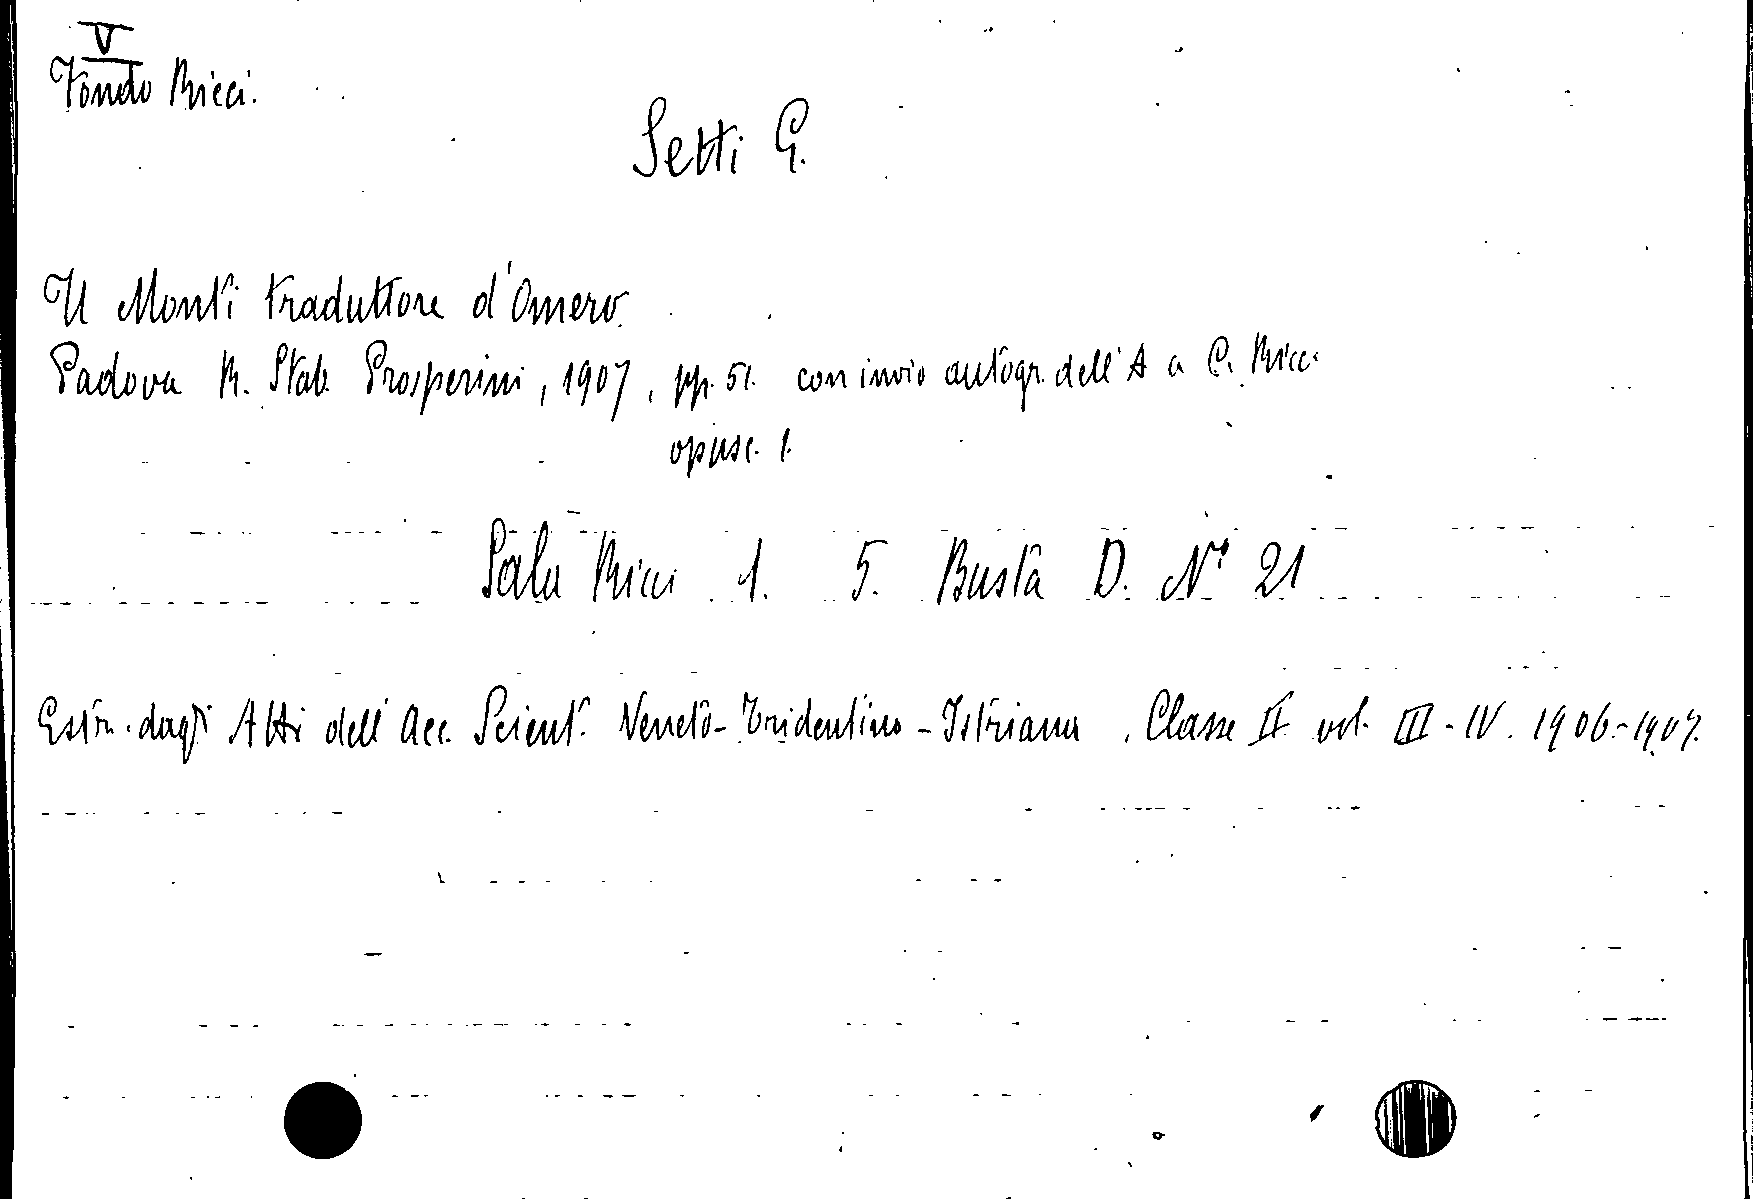 V
Fondo Ricci.
Setti G.
Il Monti traduttore d'Omero.
Padova R. Stab. Prosperini, 1907, pp. 51. con invio autogr. dell'A a C. Ricci
opusc. 1.
Sala Ricci 1. 5. Busta D. N° 21
Estr. dagli Atti dell'Acc. Scient. Veneto-Tridentino-Istriana. Classe II vol. III-IV. 1906-1907.